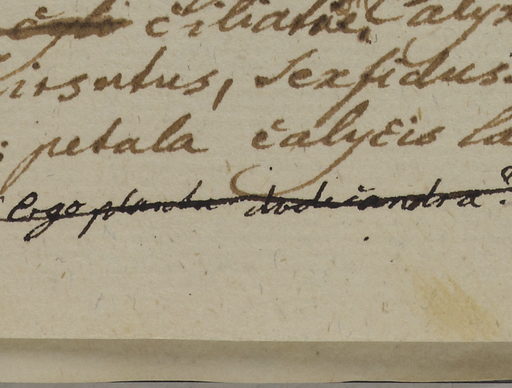 ciliatae, Calyx
hirsutus, sexfidus.
: petala calycis la
ergo planta dodecandra?